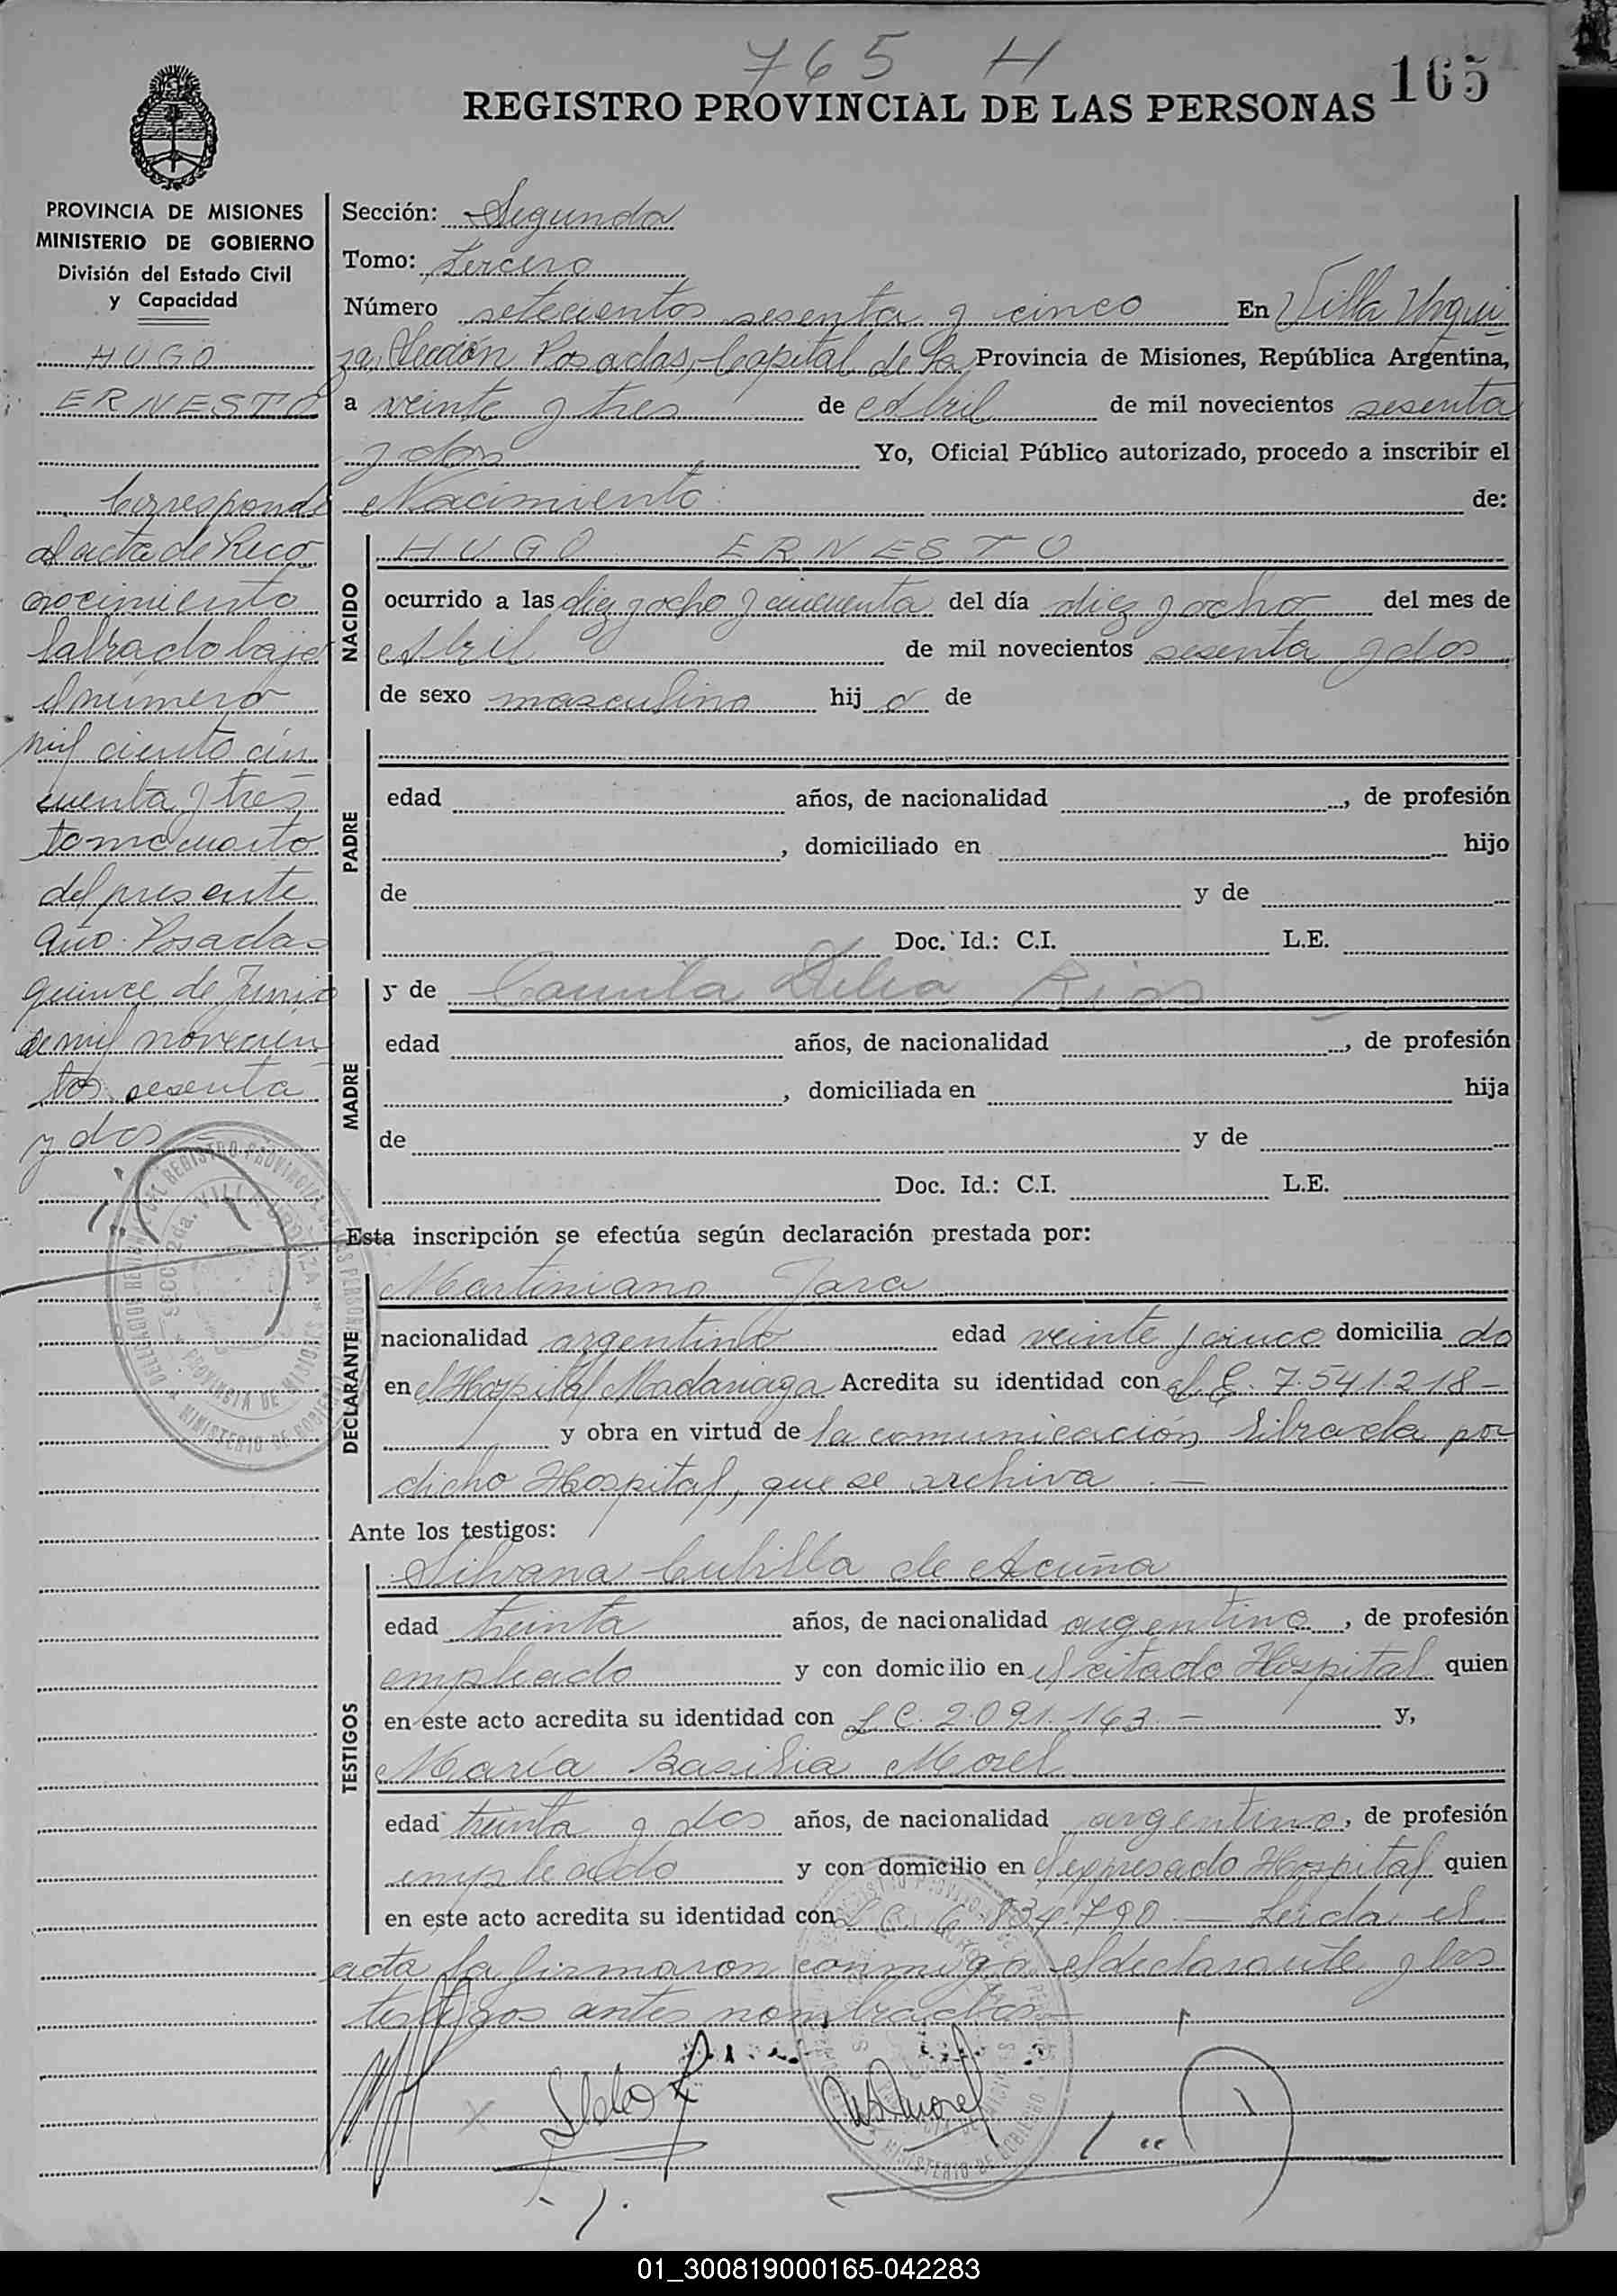 765 H
165
REGISTRO PROVINCIAL DE LAS PERSONAS
PROVINCIA DE MISIONES
MINISTERIO DE GOBIERNO
División del Estado Civil
y Capacidad
HUGO
ERNESTO
Corresponde
al acta de Reco
nocimiento
labrado bajo
el número
mil ciento cin
cuenta y tres
tomo cuarto
del presente
año. Posadas
quince de Junio
de mil novecien
tos sesenta
y dos
Sección: Segunda
Tomo: Tercero
Número setecientos sesenta y cinco En Villa Urqui
za, Sección Posadas, Capital de la Provincia de Misiones, República Argentina,
a veinte y tres de Abril de mil novecientos sesenta
y dos Yo, Oficial Público autorizado, procedo a inscribir el
Nacimiento de:
NACIDO
HUGO ERNESTO
ocurrido a las diez y ocho y cincuenta del día diez y ocho del mes de
Abril de mil novecientos sesenta y dos
de sexo masculino hij o de
PADRE
edad años, de nacionalidad , de profesión
, domiciliado en hijo
de y de
Doc. Id.: C.I. L.E.
MADRE
y de Camila Delia Rios
edad años, de nacionalidad , de profesión
, domiciliada en hija
de y de
Doc. Id.: C.I. L.E.
Esta inscripción se efectúa según declaración prestada por:
DECLARANTE
Martiniano Jara
nacionalidad argentino edad veinte y cinco domicilia do
en el Hospital Madariaga Acredita su identidad con L.E. 7.541.218-
y obra en virtud de la comunicación librada por
dicho Hospital, que se archiva.—
Ante los testigos:
TESTIGOS
Silvana Cubilla de Acuña
edad treinta años, de nacionalidad argentina, de profesión
empleado y con domicilio en el citado Hospital quien
en este acto acredita su identidad con L.C. 2.091.163.- y,
María Basilia Morel
edad treinta y dos años, de nacionalidad argentino, de profesión
empleado y con domicilio en el expresado Hospital quien
en este acto acredita su identidad con L.C. 6.834.790 — Leida el
acta la firmaron conmigo el declarante y los
testigos antes nombrados.—
01_300819000165-042283